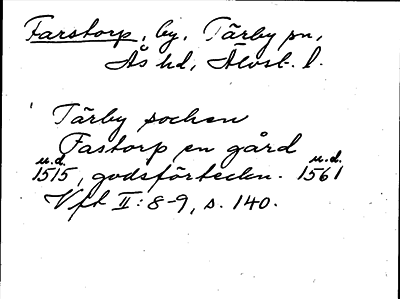 Farstorp, by, Tärby sn,
Ås hd, Älvsb. l.
Tärby socken
Fastorp en gård
u.d. u.d.
1515, godsförteckn. 1561
Vft II:8-9, s. 140.